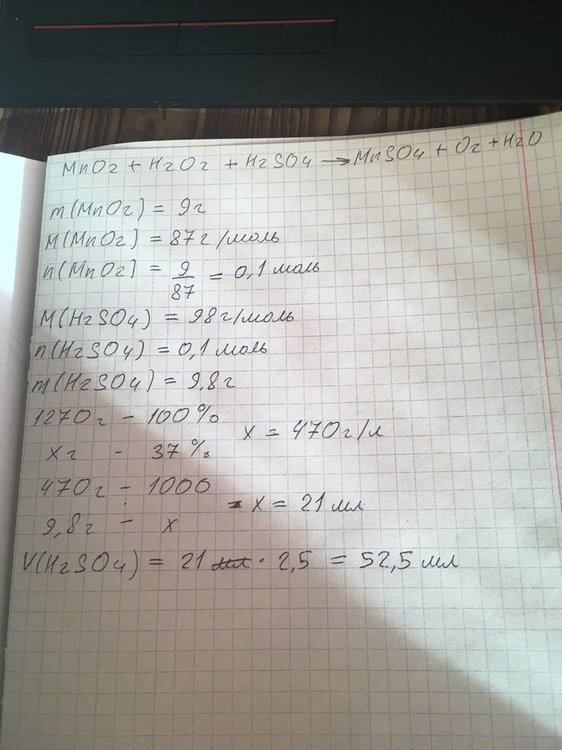 MnO2 + H2O2 + H2SO4 → MnSO4 + O2 + H2O
m(MnO2) = 9г
M(MnO2) = 87г/моль
n(MnO2) = 9/87 = 0,1 моль
M(H2SO4) = 98г/моль
n(H2SO4) = 0,1 моль
m(H2SO4) = 9,8г
1270г - 100%
x = 470г/л
xг - 37%
470г - 1000
x = 21 мл
9,8г - x
V(H2SO4) = 21 мл · 2,5 = 52,5 мл